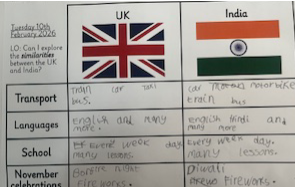 Tuesday 10th
February 2026
LO: Can I explore
the similarities
between the UK
and India?
UK
India
Transport
train car taxi
bus.
car motorbike
train bus
Languages
english and many
more.
english hindi and
many more
School
Every week day
many lessons.
Every week day.
many lessons.
November
celebrations
Bonfire night
fireworks.
Diwali
fireworks.